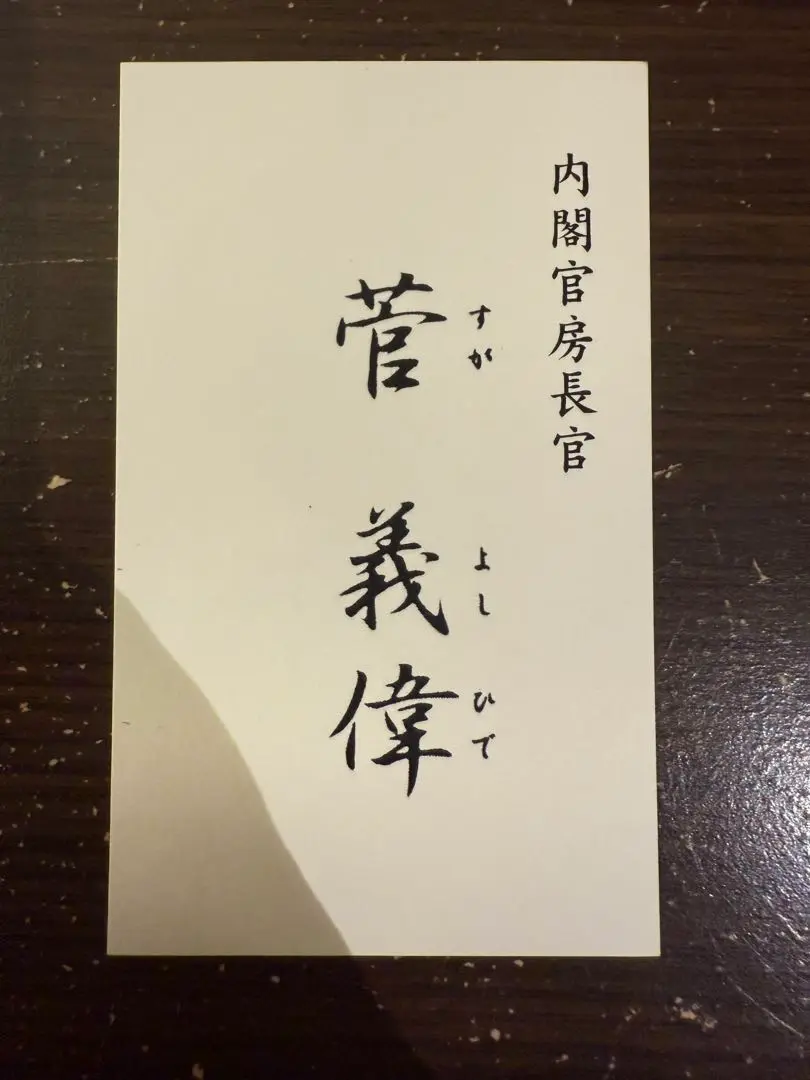 内閣官房長官
すが よし ひで
菅 義偉